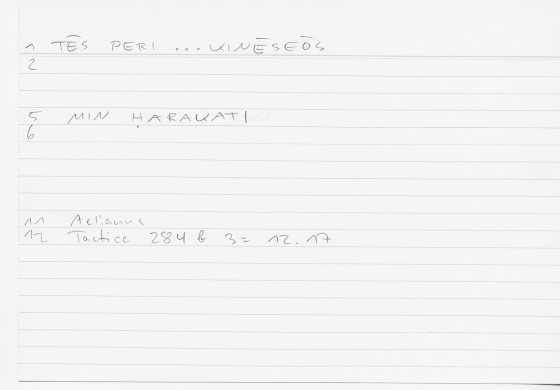 1 TĒS PERI ... KINĒSEŌS
2
5 MIN ḤARAKATI
6
11 Aelianus
12 Tactica 284 b 3 = 12.17